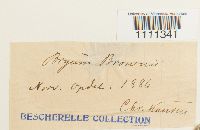 1111341
Bryum Brownii
Nov. Opdal. 1884
BESCHERELLE COLLECTION